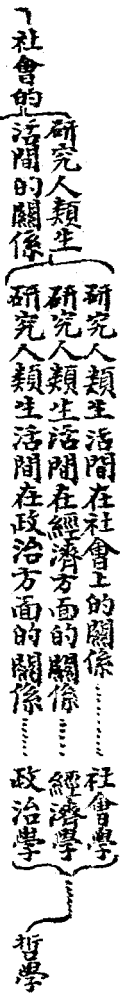 社會的
研究人類生
活間的關係
研究人類生活間在社會上的關係………社會學
研究人類生活間在經濟方面的關係……經濟學
研究人類生活間在政治方面的關係……政治學
哲學